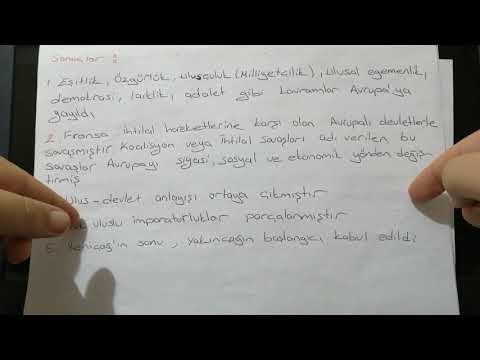 Sonuçlar :
1. Eşitlik, Özgürlük, ulusçuluk (Milliyetçilik), ulusal egemenlik,
demokrasi, laiklik, adalet gibi kavramlar Avrupa'ya
yayıldı
2. Fransa ihtilal hareketlerine karşı olan Avrupalı devletlerle
savaşmıştır Koalisyon veya İhtilal savaşları adı verilen bu
savaşlar Avrupayı siyasi, sosyal ve ekonomik yönden değiş-
tirmiş
Ulus-devlet anlayışı ortaya çıkmıştır
uluslu imparatorluklar parçalanmıştır
5. Yeniçağ'ın sonu, yakınçağın başlangıcı kabul edildi